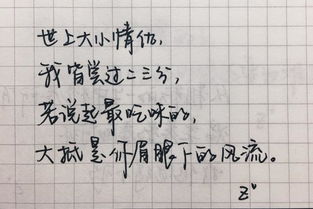 世上大小情仇，
我皆尝过二三分，
若说起最吃味的，
大抵是你眉眼下的风流。
Z